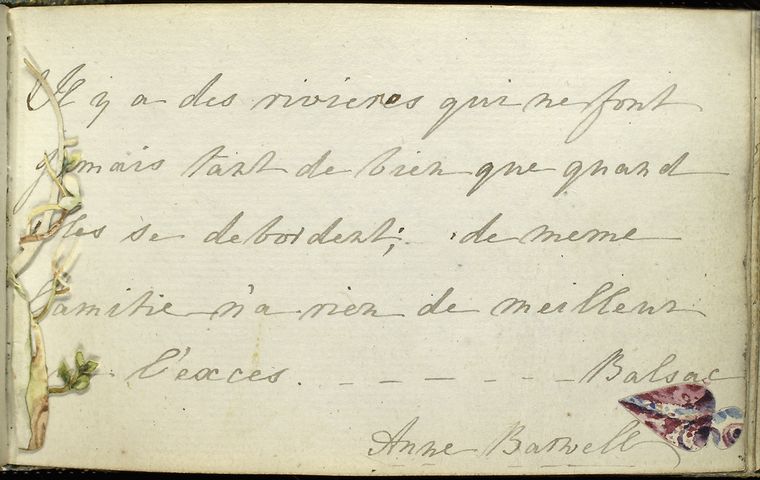 Il y a des rivieres qui ne font
jamais tant de bien que quand
elles se debordent; de meme
l'amitie n'a rien de meilleur
l'exces. - - - - - - Balsac
Anne